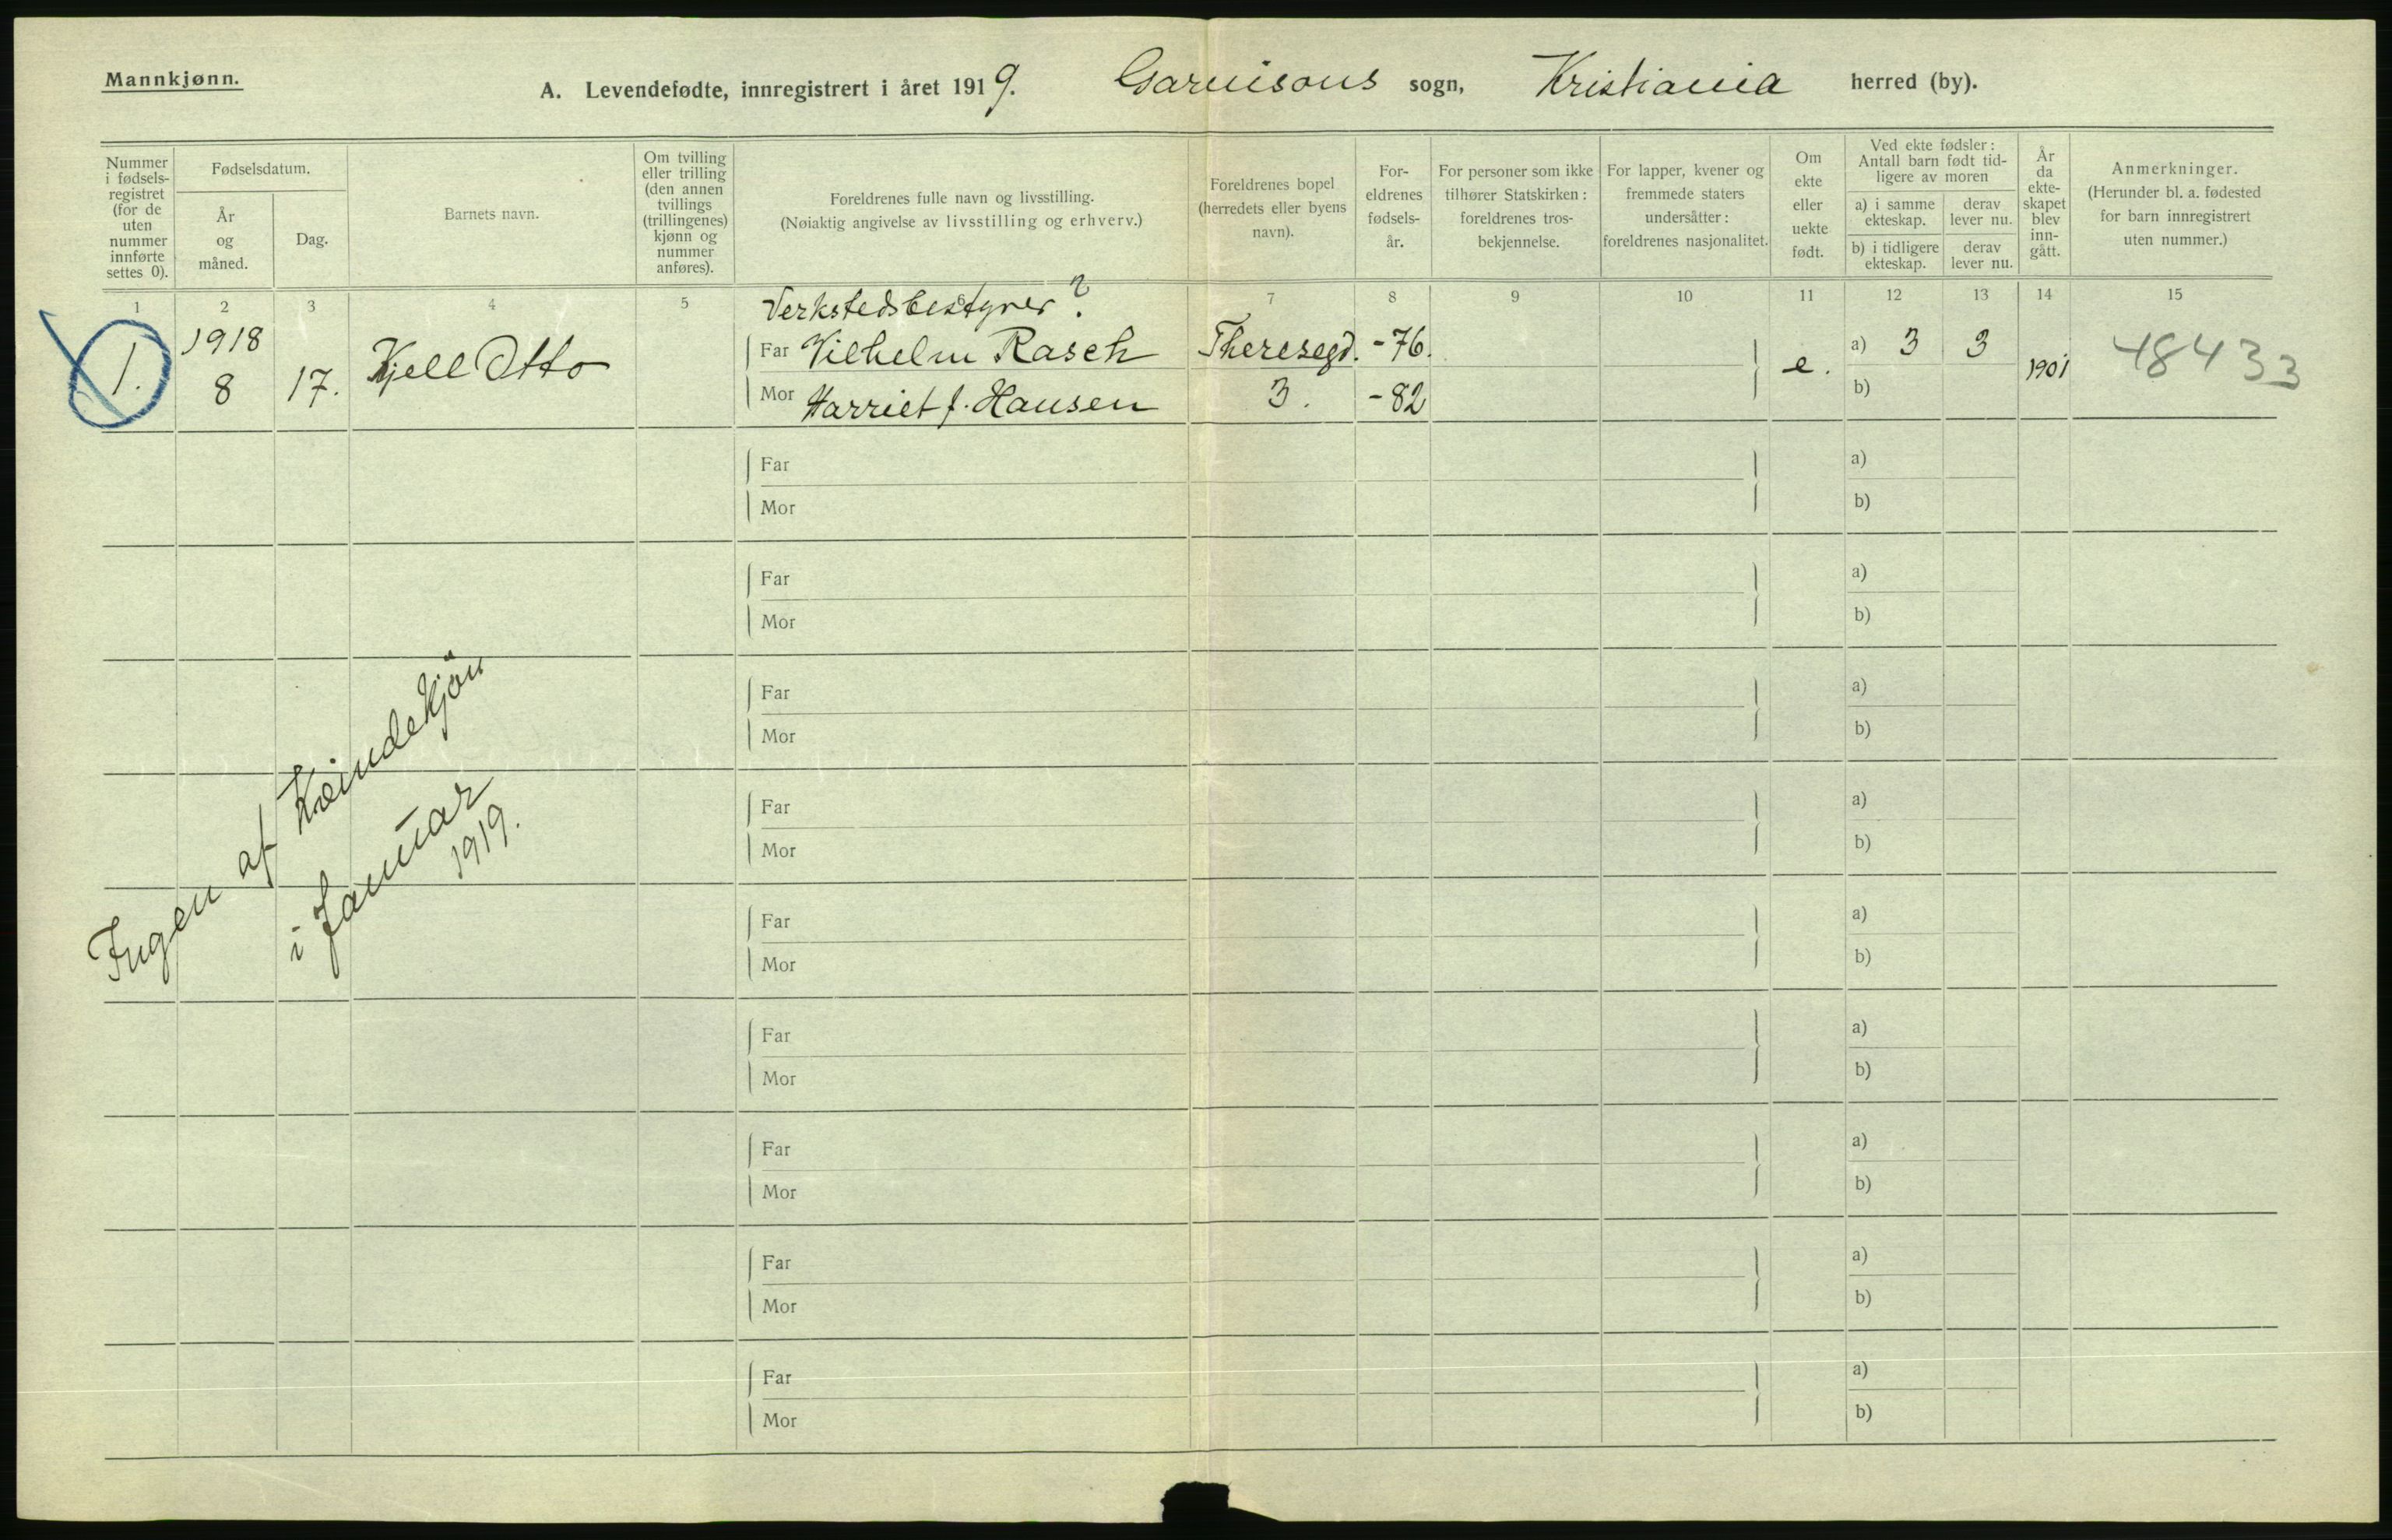 Mannkjønn.
A. Levendefødte, innregistrert i året 1919. Garnisons sogn, Kristiania herred (by).
Nummer i fødsels-registret (for de uten nummer innførte settes 0).
Fødselsdatum.
År og måned.
Dag.
Barnets navn.
Om tvilling eller trilling (den annen tvillings (trillingenes) kjønn og nummer anføres).
Foreldrenes fulle navn og livsstilling.
(Nøiaktig angivelse av livsstilling og erhverv.)
Foreldrenes bopel (herredets eller byens navn).
For-eldrenes fødsels-år.
For personer som ikke tilhører Statskirken: foreldrenes tros-bekjennelse.
For lapper, kvener og fremmede staters undersåtter: foreldrenes nasjonalitet.
Om ekte eller uekte født.
Ved ekte fødsler: Antall barn født tid-ligere av moren
a) i samme ekteskap.
derav lever nu.
b) i tidligere ekteskap.
derav lever nu.
År da ekte-skapet blev inn-gått.
Anmerkninger.
(Herunder bl. a. fødested for barn innregistrert uten nummer.)
1 2 3 4 5 6 7 8 9 10 11 12 13 14 15
Verkstedsbestyrer ?
1. 1918 8 17. Kjell Otto
Far Vilhelm Rasch Theresegd. -76. e. a) 3 3 1901 48433
Mor Harriet f. Hansen 3. -82 b)
Far a)
Mor b)
Far a)
Mor b)
Far a)
Mor b)
Far a)
Mor b)
Far a)
Mor b)
Far a)
Mor b)
Far a)
Mor b)
Far a)
Mor b)
Far a)
Mor b)
Ingen af Kvindekjön
i Januar
1919.